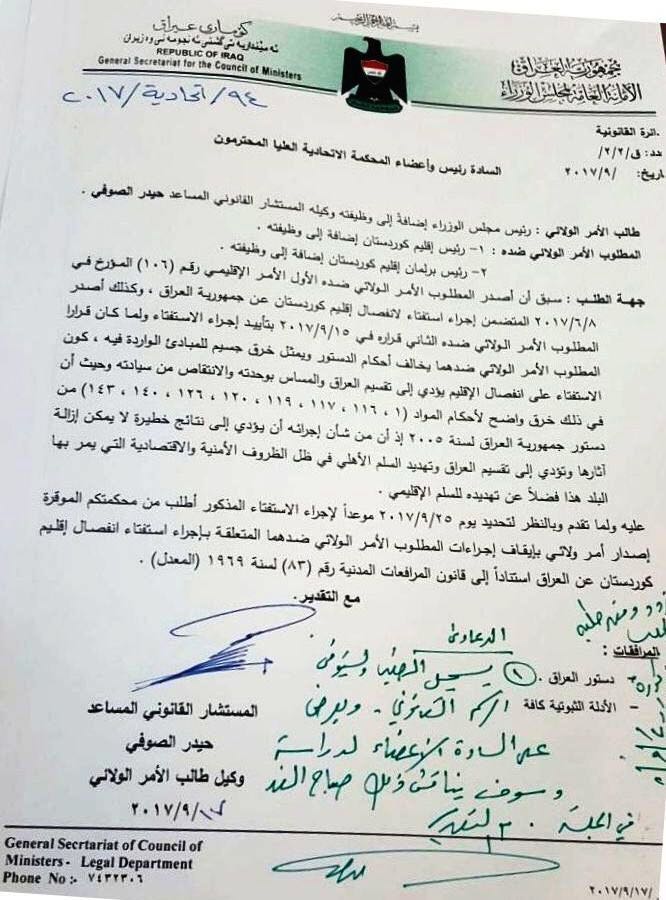 كۆماری عێراق
REPUBLIC OF IRAQ
General Secretariat for the Council of Ministers
جمهورية العراق
الأمانة العامة لمجلس الوزراء
٩٤/اتحادية/٢٠١٧
ائرة القانونية
عدد: ق/٢/٢/
اريخ: /٢٠١٧/٩
السادة رئيس وأعضاء المحكمة الاتحادية العليا المحترمون
طالب الأمر الولائي : رئيس مجلس الوزراء إضافة إلى وظيفته وكيله المستشار القانوني المساعد حيدر الصوفي .
المطلوب الأمر الولائي ضده : ١- رئيس إقليم كوردستان إضافة إلى وظيفته .
٢- رئيس برلمان إقليم كوردستان إضافة إلى وظيفته .
جهة الطلب : سبق أن أصدر المطلوب الأمر الولائي ضده الأول الأمر الإقليمي رقم (١٠٦) المؤرخ في
٢٠١٧/٦/٨ المتضمن إجراء استفتاء لانفصال إقليم كوردستان عن جمهورية العراق ، وكذلك أصدر
المطلوب الأمر الولائي ضده الثاني قراره في ٢٠١٧/٩/١٥ بتأييد إجراء الاستفتاء ولما كان قرارا
المطلوب الأمر الولائي ضدهما يخالف أحكام الدستور ويمثل خرق جسيم للمبادئ الواردة فيه ، كون
الاستفتاء على انفصال الإقليم يؤدي إلى تقسيم العراق والمساس بوحدته والانتقاص من سيادته وحيث أن
في ذلك خرق واضح لأحكام المواد (١ ، ١١٦ ، ١١٧ ، ١١٩ ، ١٢٠ ، ١٢٦ ، ١٤٠ ، ١٤٣) من
دستور جمهورية العراق لسنة ٢٠٠٥ إذ أن من شأن إجرائه أن يؤدي إلى نتائج خطيرة لا يمكن إزالة
آثارها وتؤدي إلى تقسيم العراق وتهديد السلم الأهلي في ظل الظروف الأمنية والاقتصادية التي يمر بها
البلد هذا فضلاً عن تهديده للسلم الإقليمي .
عليه ولما تقدم وبالنظر لتحديد يوم ٢٠١٧/٩/٢٥ موعداً لإجراء الاستفتاء المذكور أطلب من محكمتكم الموقرة
إصدار أمر ولائي بإيقاف إجراءات المطلوب الأمر الولائي ضدهما المتعلقة بإجراء استفتاء انفصال إقليم
كوردستان عن العراق استناداً إلى قانون المرافعات المدنية رقم (٨٣) لسنة ١٩٦٩ (المعدل) .
مع التقدير.
المرافقات :
– دستور العراق .
– الأدلة الثبوتية كافة
الدعاوى
يسجل الطلب ويستوفى
الرسم القانوني . ويعرض
على السادة الأعضاء لدراسة
وسوف يناقش ذلك صباح الغد
في الجلسة . مع التقدير
المستشار القانوني المساعد
حيدر الصوفي
وكيل طالب الأمر الولائي
٢٠١٧/٩/١٧
General Secrtariat of Council of
Ministers - Legal Department
Phone No :- ٧٤٣٢٣٠٦
٢٠١٧/٩/١٧